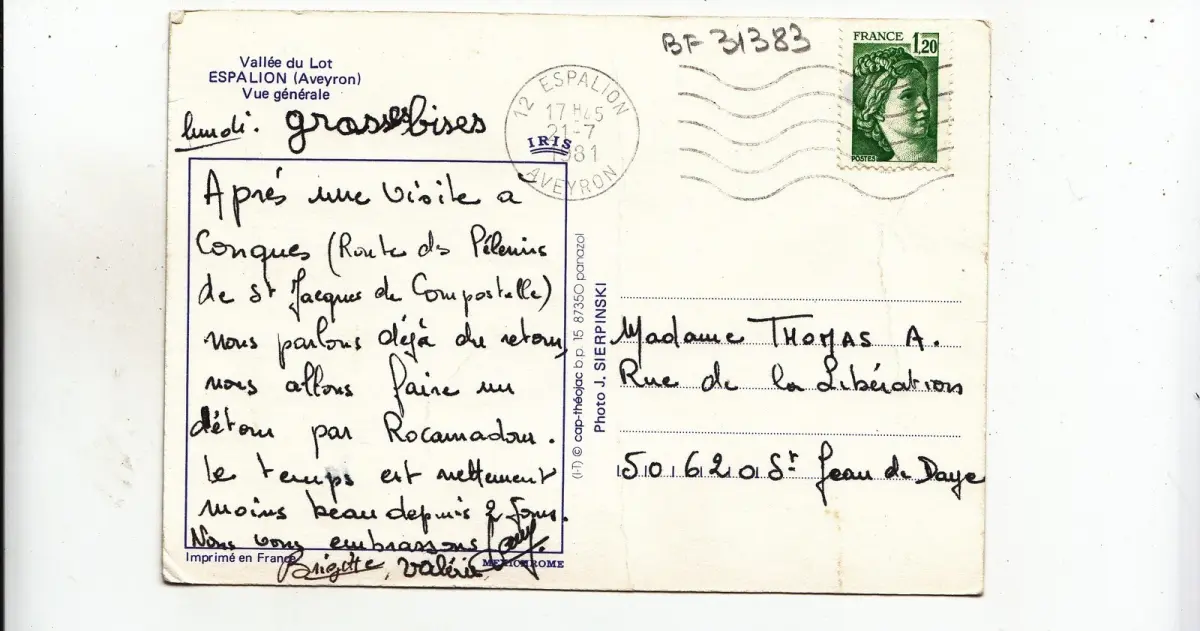 Vallée du Lot
ESPALION (Aveyron)
Vue générale
lundi. grosses bises
Après une visite à
Conques (Route des Pélerins
de St Jacques de Compostelle)
nous parlons déjà du retour,
nous allons faire un
détour par Rocamadour.
Le temps est nettement
moins beau depuis 2 jours.
Nous vous embrassons
Brigitte, Valérie
Imprimé en France
MEXICHROME
BF 31383
12 ESPALION
17 H45
21-7
1981
AVEYRON
IRIS
FRANCE 1,20
POSTES
(I-T) © cap-théojac b.p. 15 87350 panazol
Photo J. SIERPINSKI
Madame THOMAS A.
Rue de la Libération
50620 St Jean de Daye